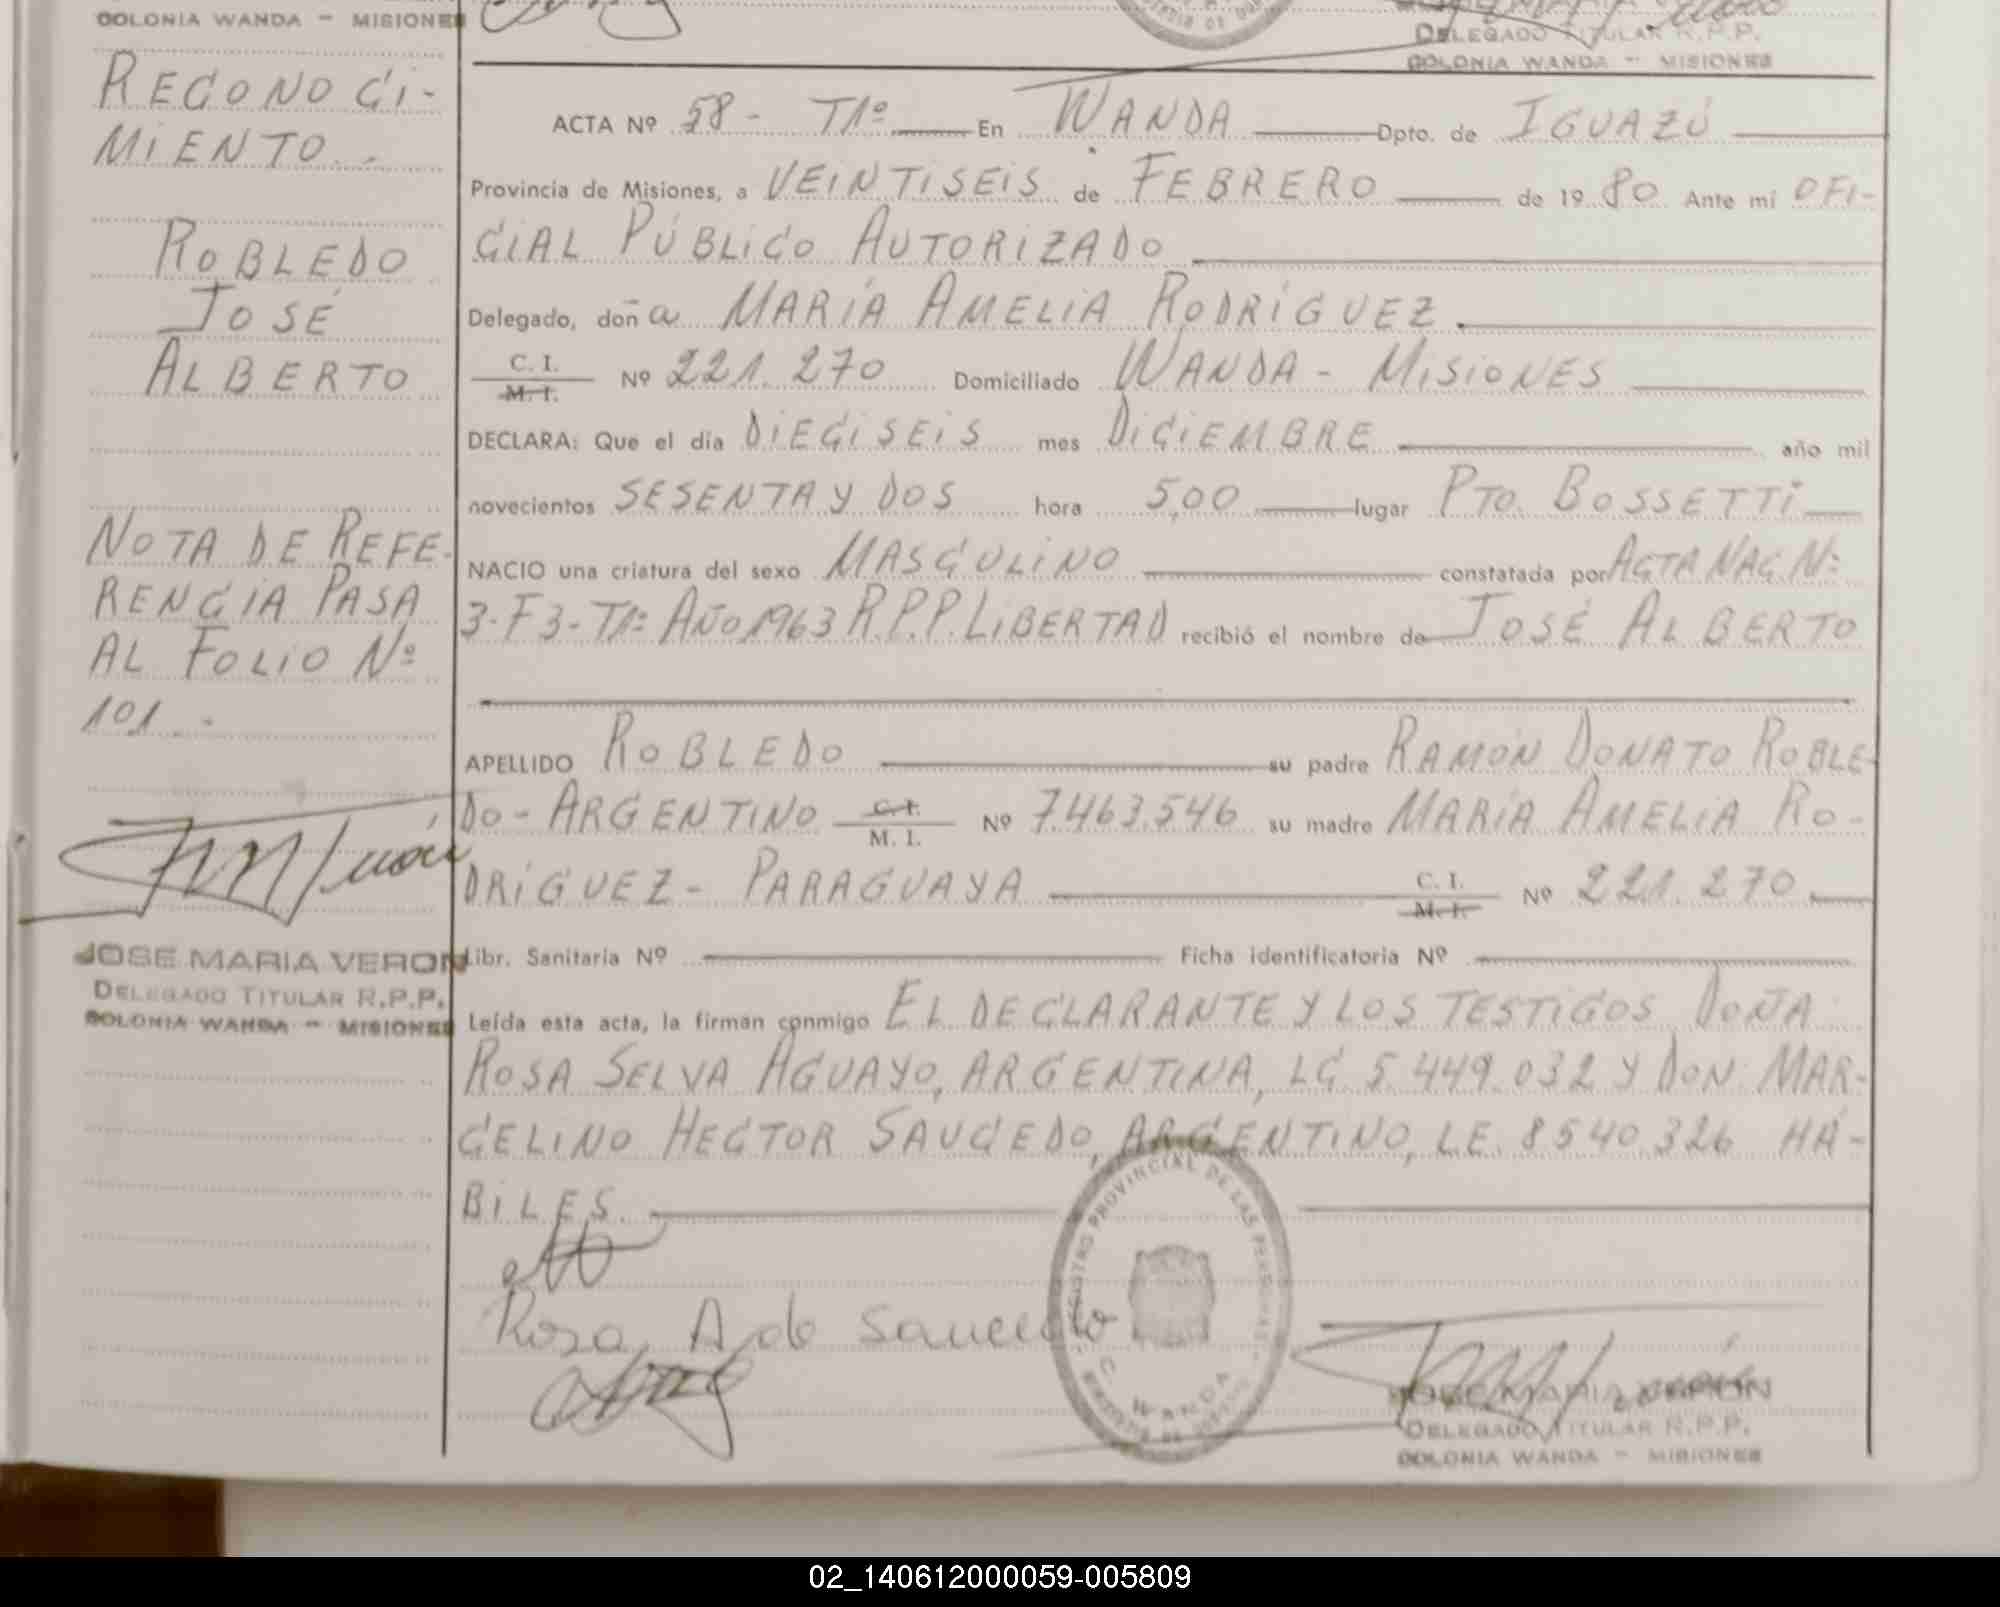 COLONIA WANDA - MISIONES
DELEGADO TITULAR R.P.P.
COLONIA WANDA - MISIONES
RECONOCI-
MIENTO.-
ROBLEDO
JOSÉ
ALBERTO
NOTA DE REFE-
RENCIA PASA
AL FOLIO Nº
101.-
JOSE MARIA VERON
DELEGADO TITULAR R.P.P.
COLONIA WANDA - MISIONES
ACTA Nº 58- T1º En WANDA Dpto. de IGUAZÚ
Provincia de Misiones, a VEINTISEIS de FEBRERO de 1980 Ante mi OFI-
CIAL PÚBLICO AUTORIZADO
Delegado, doña MARÍA AMELIA RODRÍGUEZ.
C. I.
M. I. Nº 221.270 Domiciliado WANDA - MISIONES
DECLARA: Que el día DIECISEIS mes DICIEMBRE año mil
novecientos SESENTA Y DOS hora 5,00 lugar PTO. BOSSETTI
NACIO una criatura del sexo MASCULINO constatada por ACTA NAC Nº
3-F3-T1º AÑO 1963 R.P.P. LIBERTAD recibió el nombre de JOSÉ ALBERTO
APELLIDO ROBLEDO su padre RAMÓN DONATO ROBLE-
DO - ARGENTINO C. I. M. I. Nº 7.463.546 su madre MARÍA AMELIA RO-
DRÍGUEZ - PARAGUAYA C. I. M. I. Nº 221.270
Libr. Sanitaria Nº Ficha identificatoria Nº
Leída esta acta, la firman conmigo EL DECLARANTE Y LOS TESTIGOS DOÑA
ROSA SELVA AGUAYO, ARGENTINA, LC 5.449.032 Y DON MAR-
CELINO HECTOR SAUCEDO, ARGENTINO, L.E. 8540.326 HÁ-
BILES.
Rosa A de Saucedo
REGISTRO PROVINCIAL DE LAS PERSONAS
C. WANDA
JOSE MARIA VERON
DELEGADO TITULAR R.P.P.
COLONIA WANDA - MISIONES
02_140612000059-005809